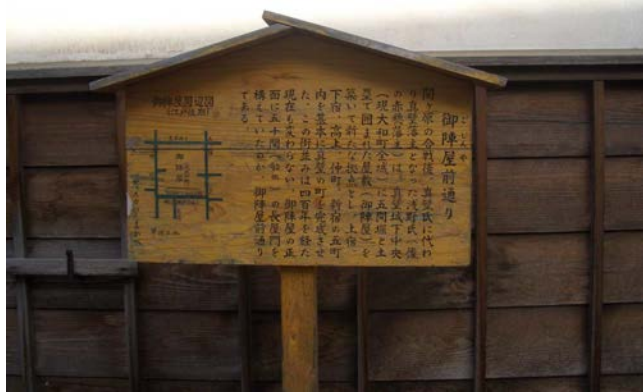 御陣屋前通り
ごじんや
関ヶ原の合戦後、真壁氏に代わ
り真壁藩主となった浅野氏（後
の赤穂藩主）は、真壁城下中央
（現大和町全域）に五間堀と土
塁で囲まれた屋敷（御陣屋）を
築いて新たな拠点とし、上宿、
下宿、高上、仲町、新宿の五町
内を基本に真壁の町を完成させ
た。この街並みは四百年を経た
現在も変わらない。御陣屋の正
面に五十間の長屋門を
構えていたのが、御陣屋前通り
である。
御陣屋周辺図
御陣屋